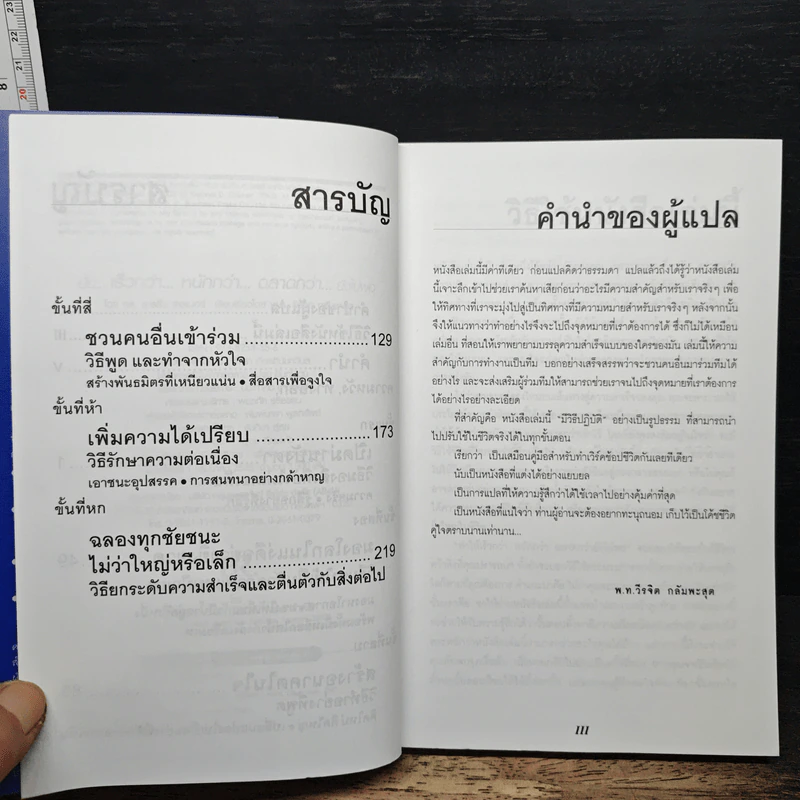 23
22
21
20
8
สารบัญ
ขั้นที่สี่
ชวนคนอื่นเข้าร่วม ........................ 129
วิธีพูด และทำจากหัวใจ
สร้างพันธมิตรที่เหนียวแน่น • สื่อสารเพื่อจูงใจ
ขั้นที่ห้า
เพิ่มความได้เปรียบ ...................... 173
วิธีรักษาความต่อเนื่อง
เอาชนะอุปสรรค • การสนทนาอย่างกล้าหาญ
ขั้นที่หก
ฉลองทุกชัยชนะ
ไม่ว่าใหญ่หรือเล็ก ........................ 219
วิธียกระดับความสำเร็จและตื่นตัวกับสิ่งต่อไป
คำนำของผู้แปล
หนังสือเล่มนี้มีค่าทีเดียว ก่อนแปลคิดว่าธรรมดา แปลแล้วถึงได้รู้ว่าหนังสือเล่ม
นี้เจาะลึกเข้าไปช่วยเราค้นหาเสียก่อนว่าอะไรมีความสำคัญสำหรับเราจริงๆ เพื่อ
ให้ทิศทางที่เราจะมุ่งไปสู่เป็นทิศทางที่มีความหมายสำหรับเราจริงๆ หลังจากนั้น
จึงให้แนวทางว่าทำอย่างไรจึงจะไปถึงจุดหมายที่เราต้องการได้ ซึ่งก็ไม่ได้เหมือน
เล่มอื่น ที่สอนให้เราพยายามบรรลุความสำเร็จแบบของใครของมัน เล่มนี้ให้ความ
สำคัญกับการทำงานเป็นทีม บอกอย่างเสร็จสรรพว่าจะชวนคนอื่นมาร่วมทีมได้
อย่างไร และจะส่งเสริมผู้ร่วมทีมให้สามารถช่วยเราจนไปถึงจุดหมายที่เราต้องการ
ได้อย่างไรอย่างละเอียด
ที่สำคัญคือ หนังสือเล่มนี้ "มีวิธีปฏิบัติ" อย่างเป็นรูปธรรม ที่สามารถนำ
ไปปรับใช้ในชีวิตจริงได้ในทุกขั้นตอน
เรียกว่า เป็นเสมือนคู่มือสำหรับทำเวิร์คช้อปชีวิตกันเลยทีเดียว
นับเป็นหนังสือที่แต่งได้อย่างแยบยล
เป็นการแปลที่ให้ความรู้สึกว่าได้ใช้เวลาไปอย่างคุ้มค่าที่สุด
เป็นหนังสือที่แน่ใจว่า ท่านผู้อ่านจะต้องอยากทะนุถนอม เก็บไว้เป็นโค้ชชีวิต
คู่ใจตราบนานเท่านาน...
พ.ท.วีรจิต กลัมพะสุต
III